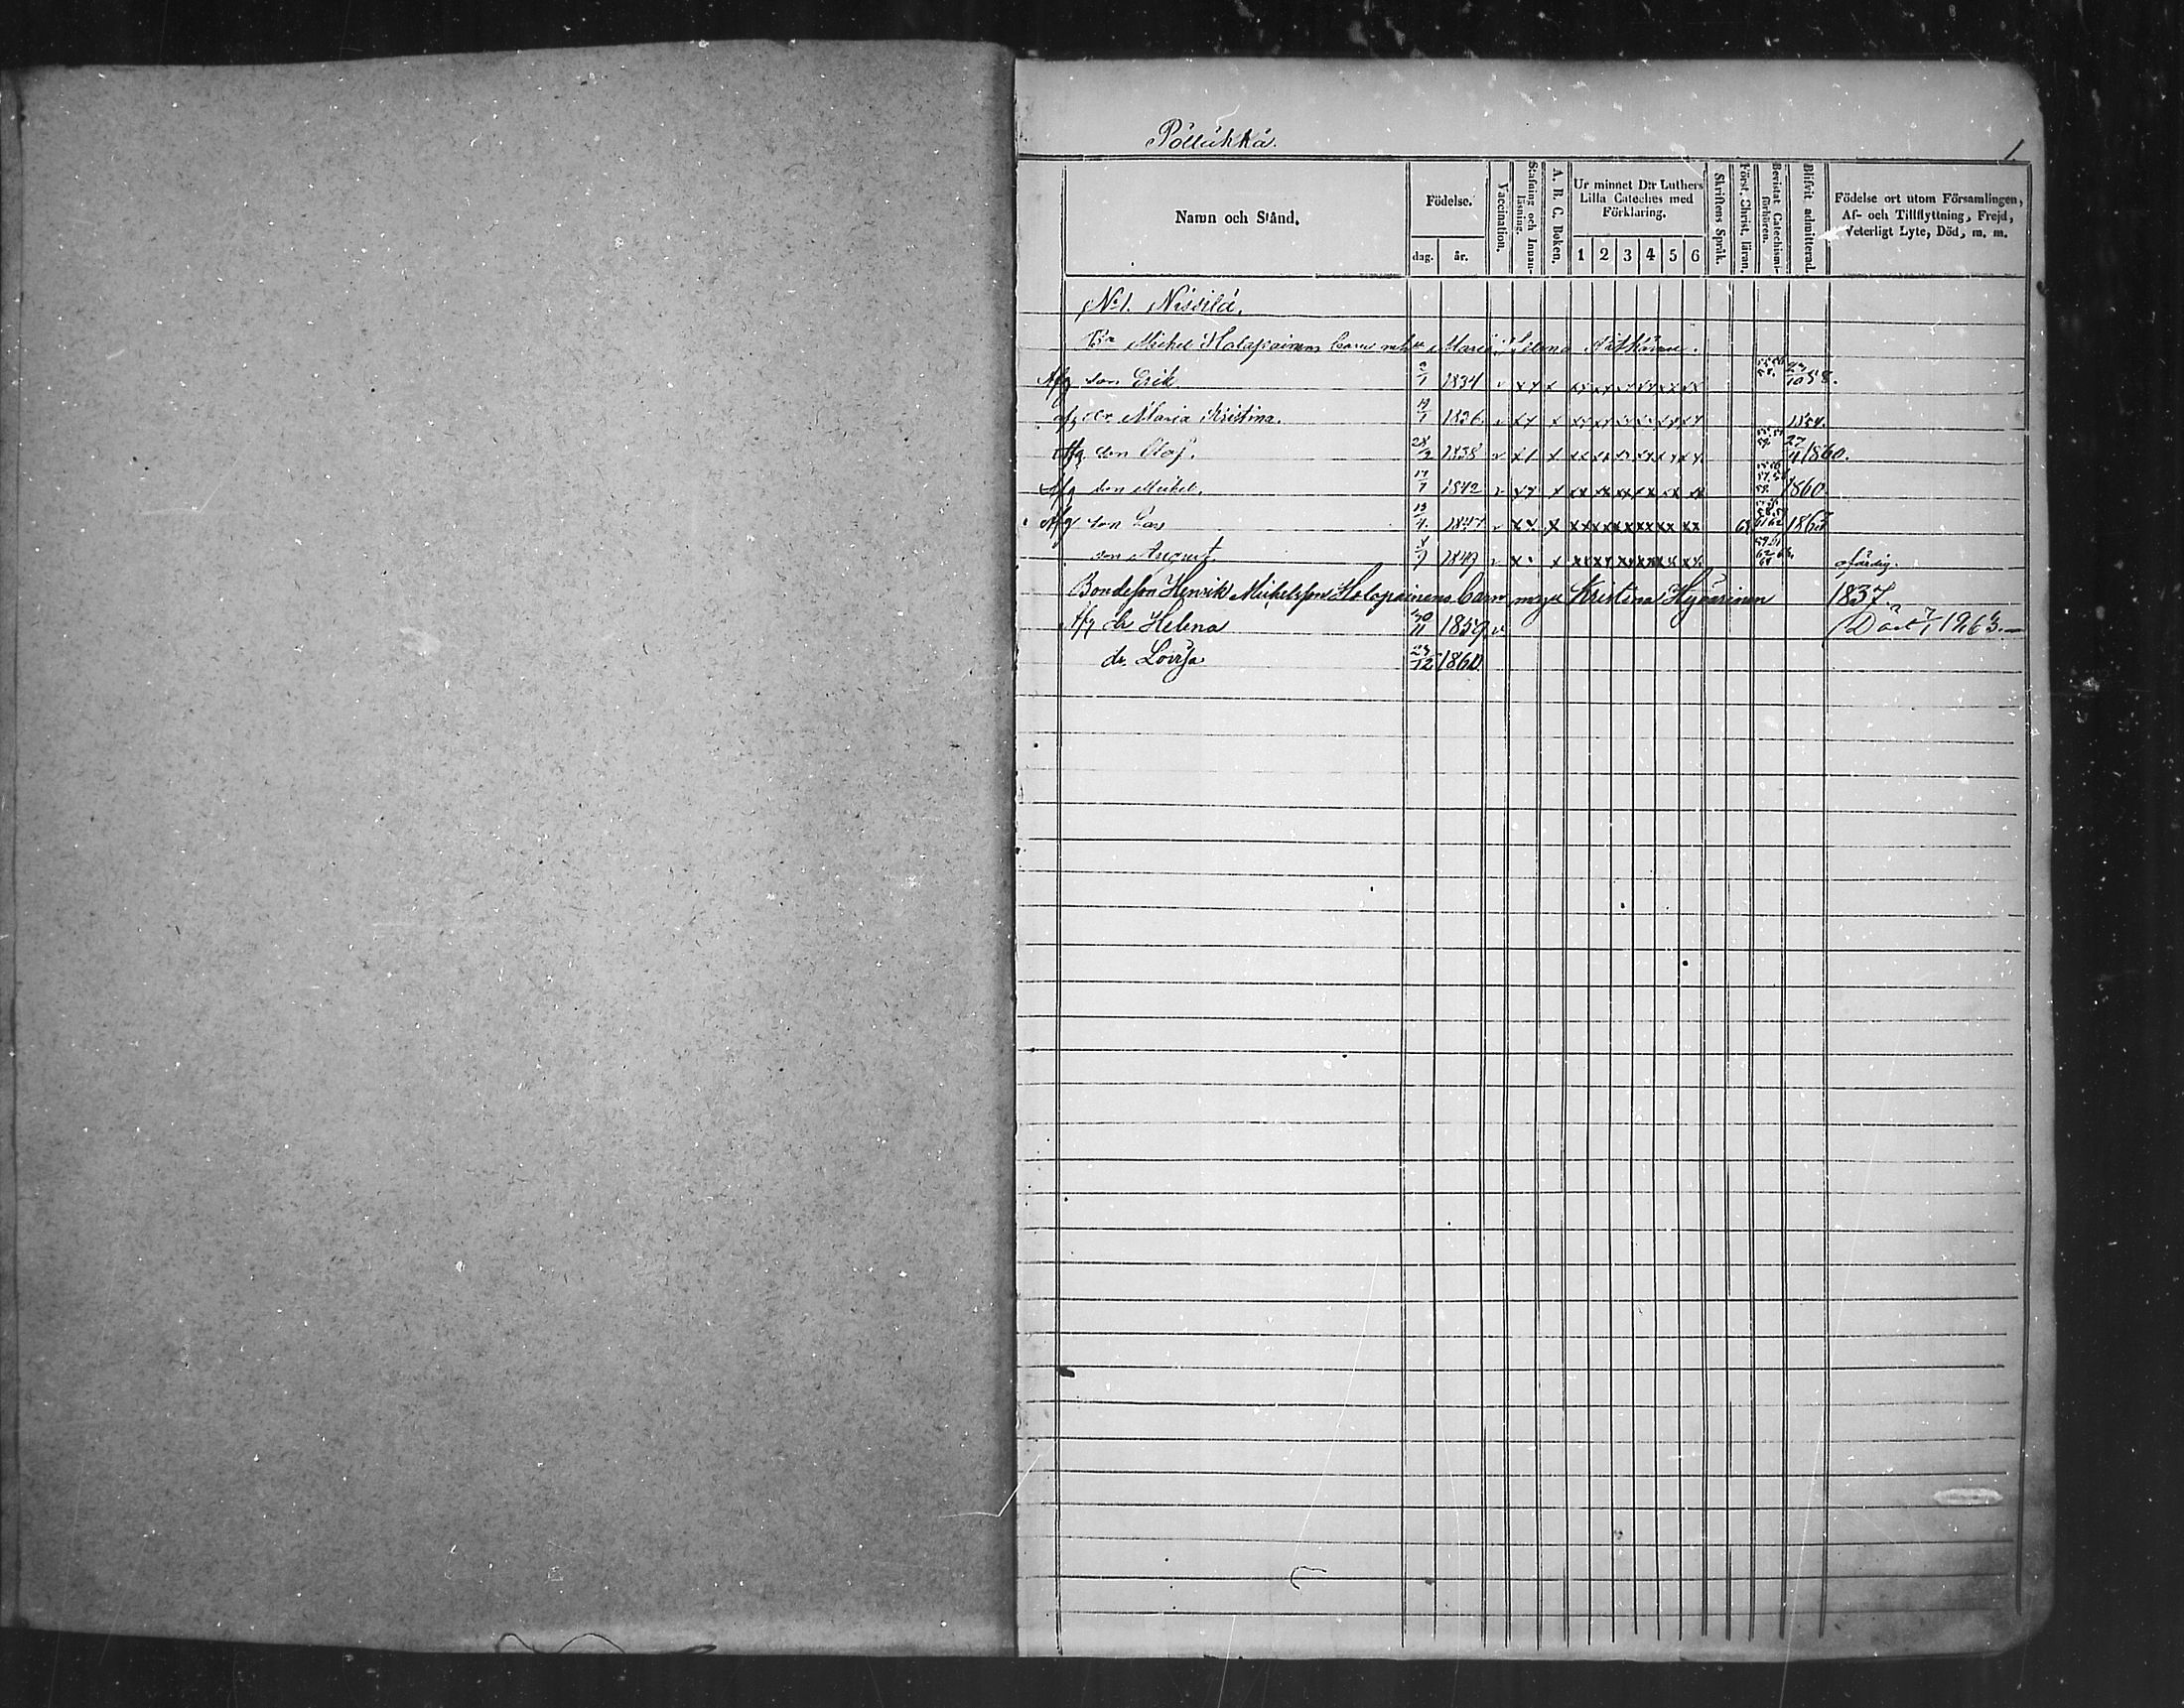 Pöllükkä.
1
Namn och Stånd.
Födelse.
dag.
år.
Vaccination.
Stafning och Innanläsning.
A. B. C. Boken.
Ur minnet D:r Luthers Lilla Cateches med Förklaring.
1 2 3 4 5 6
Skriftens Språk.
Först. Christ. läran.
Bevistat Catechismiförhören.
Blifvit admitterad.
Födelse ort utom Församlingen, Af- och Tillflyttning, Frejd, Veterligt Lyte, Död, m. m.
No 1. Nissilä.
Michel Holapainens barn Maria Helena
Afg son Erik 2/1 1834 v 10 58.
afg dr Maria Kristina. 19/1 1836. v 1854.
Afg. son Olof. 28/9 1838 v 27/11 1860.
Afg son Michel. 17/7 1842 v 1860.
Afg son Lars 13/4. 1847 v 1863
son August. 1849 v ofärdig.
Bondeson Henrik Michelsson Holopainens barn m Kristina Hyvärinen 1837.
Afg dr Helena 30/11 1859 v Död 1863.
dr. Lovisa 23/12 1860